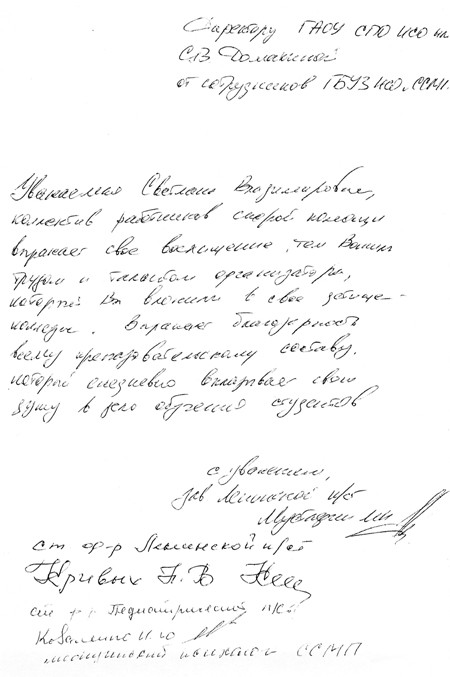 Директору ГАОУ СПО НСО
С.В. Домахиной
от сотрудников ГБУЗ НСО "ССМП
Уважаемая Светлана Владимировна,
коллектив работников скорой помощи
выражает свое восхищение тем Вашим
трудом и талантом организатора,
который Вы вложили в свое детище -
колледж. Выражает благодарность
всему преподавательскому составу,
который ежедневно вкладывает свою
душу в дело обучения студентов
с уважением,
зав Ленинской п/ст
ст ф-р Ленинской п/ст
Кривых Н.В
ст ф-р Педиатрической п/ст
медицинский психолог ССМП